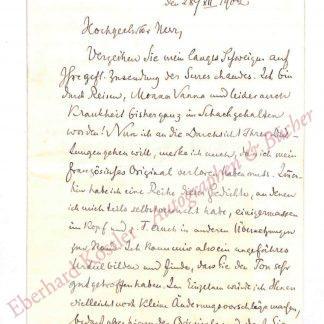 den 28/XII 1902
Hochgeehrter Herr,
Verzeihen Sie mein langes Schweigen auf
Ihre gefl. Zusendung des Serres chaudes. Ich bin
durch Reisen, Monna Vanna und leider auch
Krankheit bisher ganz in Schach gehalten
worden! Nun ich an die Durchsicht Ihrer
gehen will, merke ich auch, daß ich mein
französisches Original verloren haben muss.
habe ich eine Reihe der Gedichte, an denen
ich mich teils selbst versucht habe, einigermassen
im Kopf und z. T. auch in anderen Übersetzungen
zur Hand. Ich kann mir also ein ungefähres
Urteil bilden und finde, dass Sie den Ton sehr
gut getroffen haben. Im Einzelnen würde ich Ihnen
vielleicht noch kleine Änderungsvorschläge machen,
Eberhard Köstler Autographen & Bücher